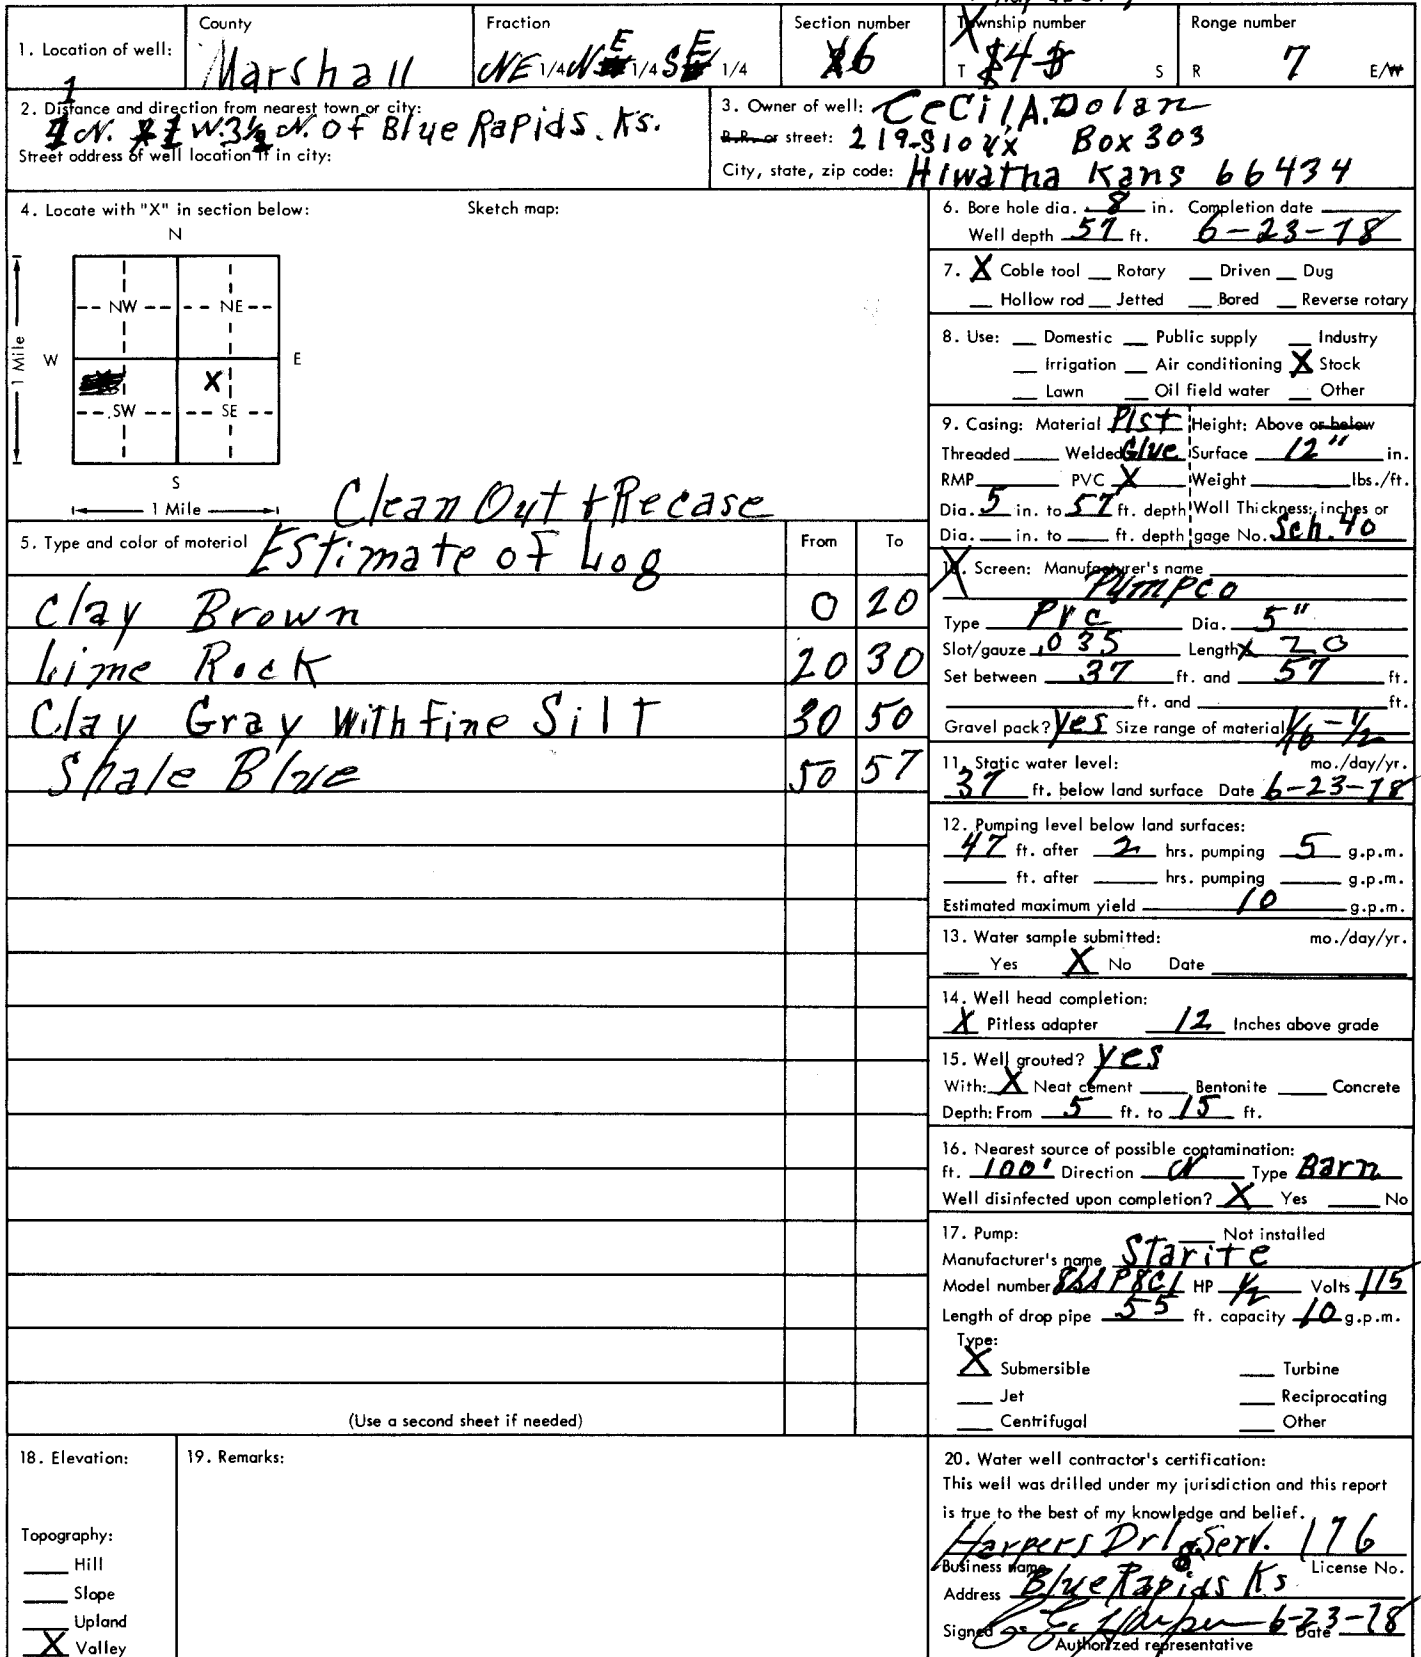 County Fraction Section number Township number Range number
1. Location of well: Marshall NE 1/4 NE 1/4 SE 1/4 6 T 4 S R 7 E/W
2. Distance and direction from nearest town or city: 1 N. 1 W. 3½ N. Of Blue Rapids. Ks.
Street address of well location if in city:
3. Owner of well: CeCil A. Dolan
R.R. or street: 219-Sioux Box 303
City, state, zip code: Hiwatha Kans 66434
4. Locate with "X" in section below: Sketch map:
N
NW NE
W E
X
SW SE
S
1 Mile
1 Mile
Clean Out + Recase
5. Type and color of material Estimate of Log From To
Clay Brown 0 20
Lime Rock 20 30
Clay Gray With fine Silt 30 50
Shale Blue 50 57
(Use a second sheet if needed)
6. Bore hole dia. 8 in. Completion date
Well depth 57 ft. 6-23-78
7. X Cable tool Rotary Driven Dug
Hollow rod Jetted Bored Reverse rotary
8. Use: Domestic Public supply Industry
Irrigation Air conditioning X Stock
Lawn Oil field water Other
9. Casing: Material Plst Height: Above or below
Threaded Welded Glue Surface 12" in.
RMP PVC X Weight lbs./ft.
Dia. 5 in. to 57 ft. depth Wall Thickness: inches or
Dia. in. to ft. depth gage No. Sch. 40
10. Screen: Manufacturer's name
Pumpco
Type PVC Dia. 5"
Slot/gauze .035 Length 20
Set between 37 ft. and 57 ft.
ft. and ft.
Gravel pack? Yes Size range of material 1/16 - 1/2
11. Static water level: mo./day/yr.
37 ft. below land surface Date 6-23-78
12. Pumping level below land surfaces:
47 ft. after 2 hrs. pumping 5 g.p.m.
ft. after hrs. pumping g.p.m.
Estimated maximum yield 10 g.p.m.
13. Water sample submitted: mo./day/yr.
Yes X No Date
14. Well head completion:
X Pitless adapter 12 Inches above grade
15. Well grouted? yes
With: X Neat cement Bentonite Concrete
Depth: From 5 ft. to 15 ft.
16. Nearest source of possible contamination:
ft. 100' Direction N Type Barn
Well disinfected upon completion? X Yes No
17. Pump: Not installed
Manufacturer's name Starite
Model number HP 1/2 Volts 115
Length of drop pipe 55 ft. capacity 10 g.p.m.
Type:
X Submersible Turbine
Jet Reciprocating
Centrifugal Other
18. Elevation:
Topography:
Hill
Slope
Upland
X Valley
19. Remarks:
20. Water well contractor's certification:
This well was drilled under my jurisdiction and this report
is true to the best of my knowledge and belief.
Harpers Drlg. Serv. 176
Business name License No.
Address Blue Rapids Ks
Signed Harper 6-23-78 Date
Authorized representative